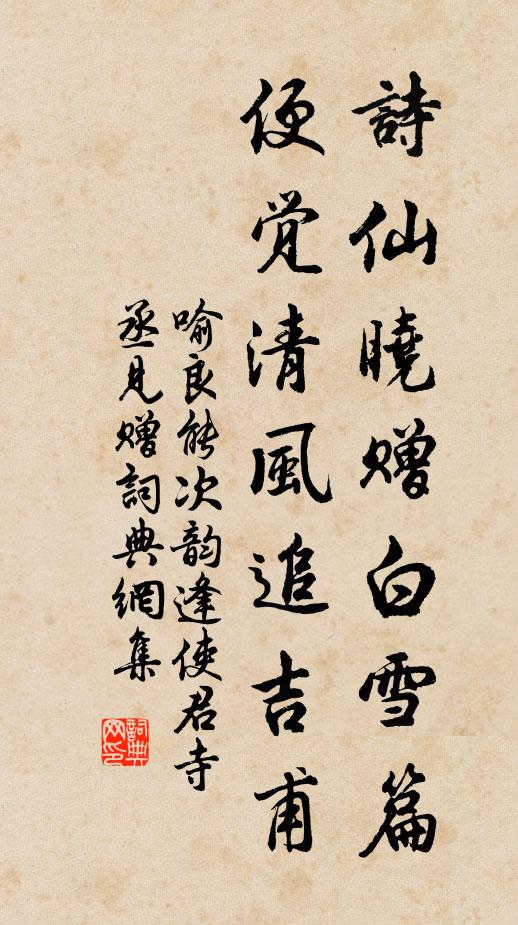 詩仙曉贈白雪篇
便覺清風追吉甫
喻良能次韵逢使君寺
丞見贈詞典網集
詞典网印